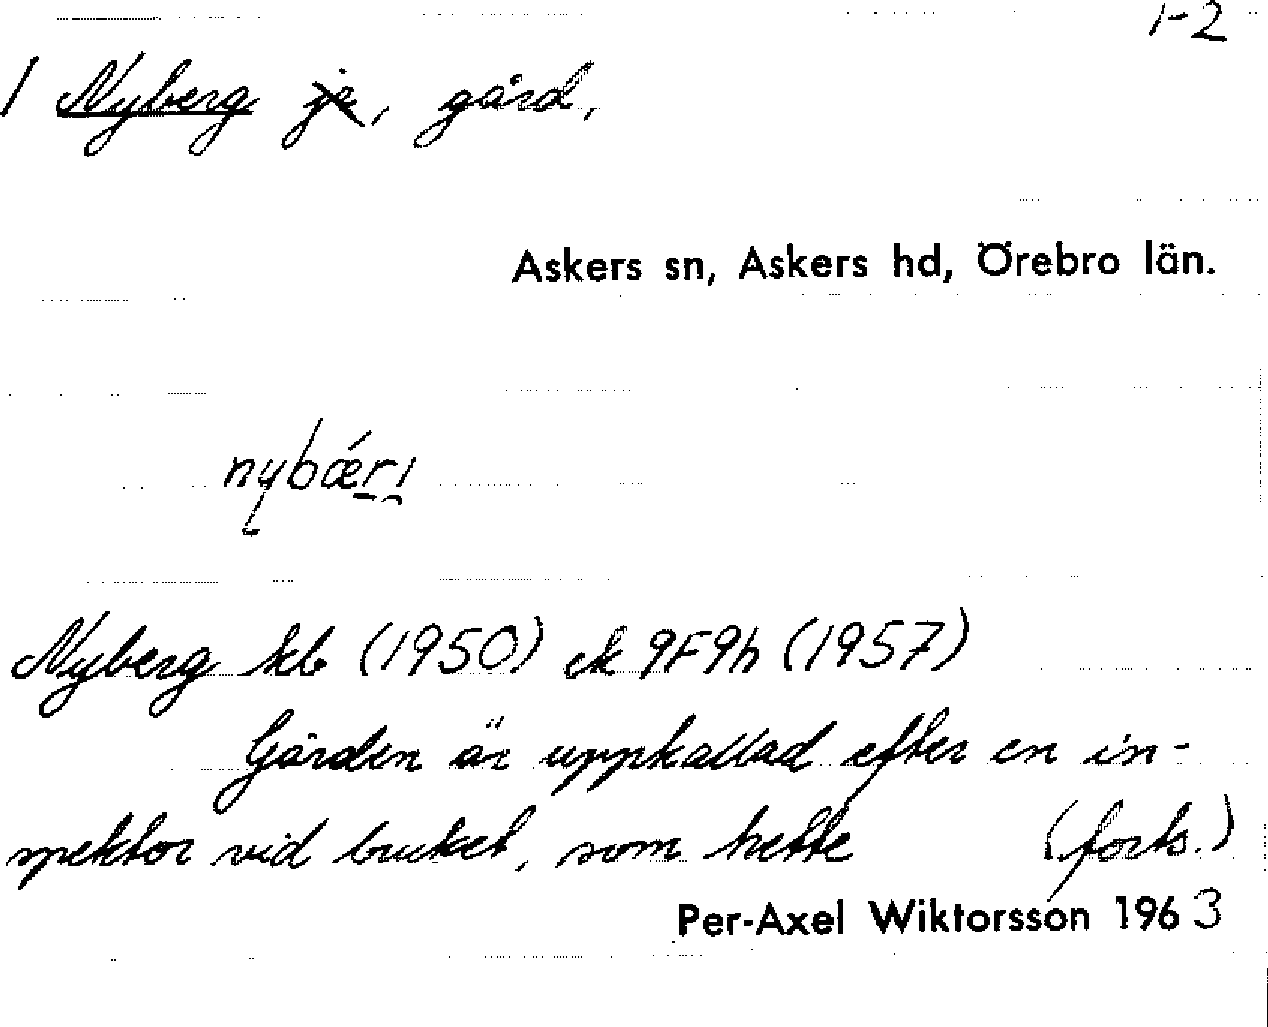 1-2
/ Nyberg je, gård,
Askers sn, Askers hd, Örebro län.
nybǽrı
Nyberg kb (1950) ek 9F9h (1957)
Gården är uppkallad efter en in-
spektor vid bruket, som hette (forts.)
Per-Axel Wiktorsson 1963